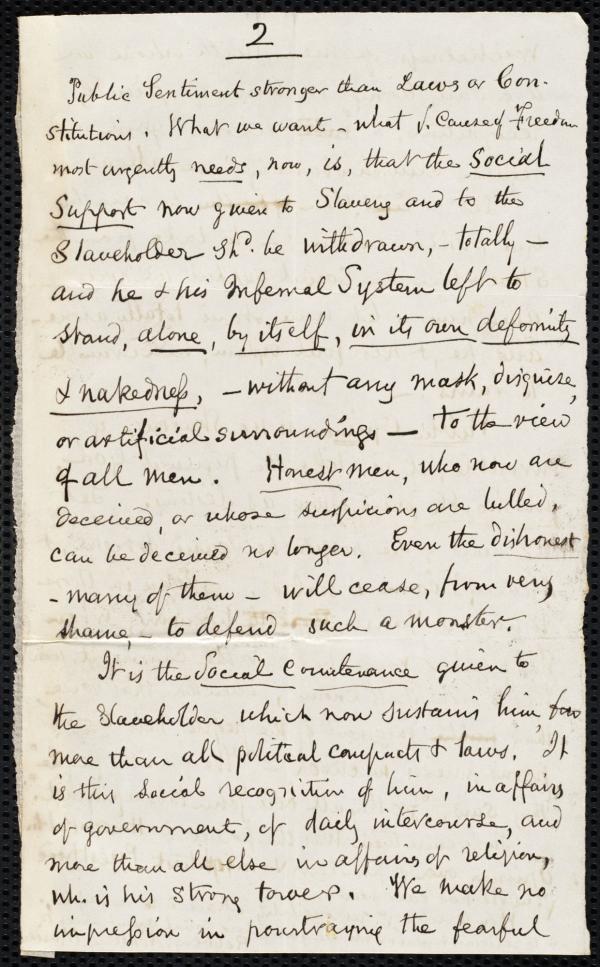 2
Public Sentiment stronger than Laws or Con-
stitutions. What we want - what ye. Cause of Freedom
most urgently needs, now, is, that the Social
Support now given to Slavery and to the
Slaveholder shd. be withdrawn, - totally -
and he & his Infernal System left to
stand, alone, by itself, in its own deformity
& nakedness, - without any mask, disguise,
or artificial surroundings - to the view
of all men. Honest men, who now are
deceived, or whose suspicions are lulled,
can be deceived no longer. Even the dishonest
- many of them - will cease, from very
shame, - to defend such a monster.
It is the Social Countenance given to
the Slaveholder which now sustains him, far
more than all political compacts & laws. It
is this social recognition of him, in affairs
of government, of daily intercourse, and
more than all else in affairs of religion,
wh. is his strong tower. We make no
impression in pourtraying the fearful